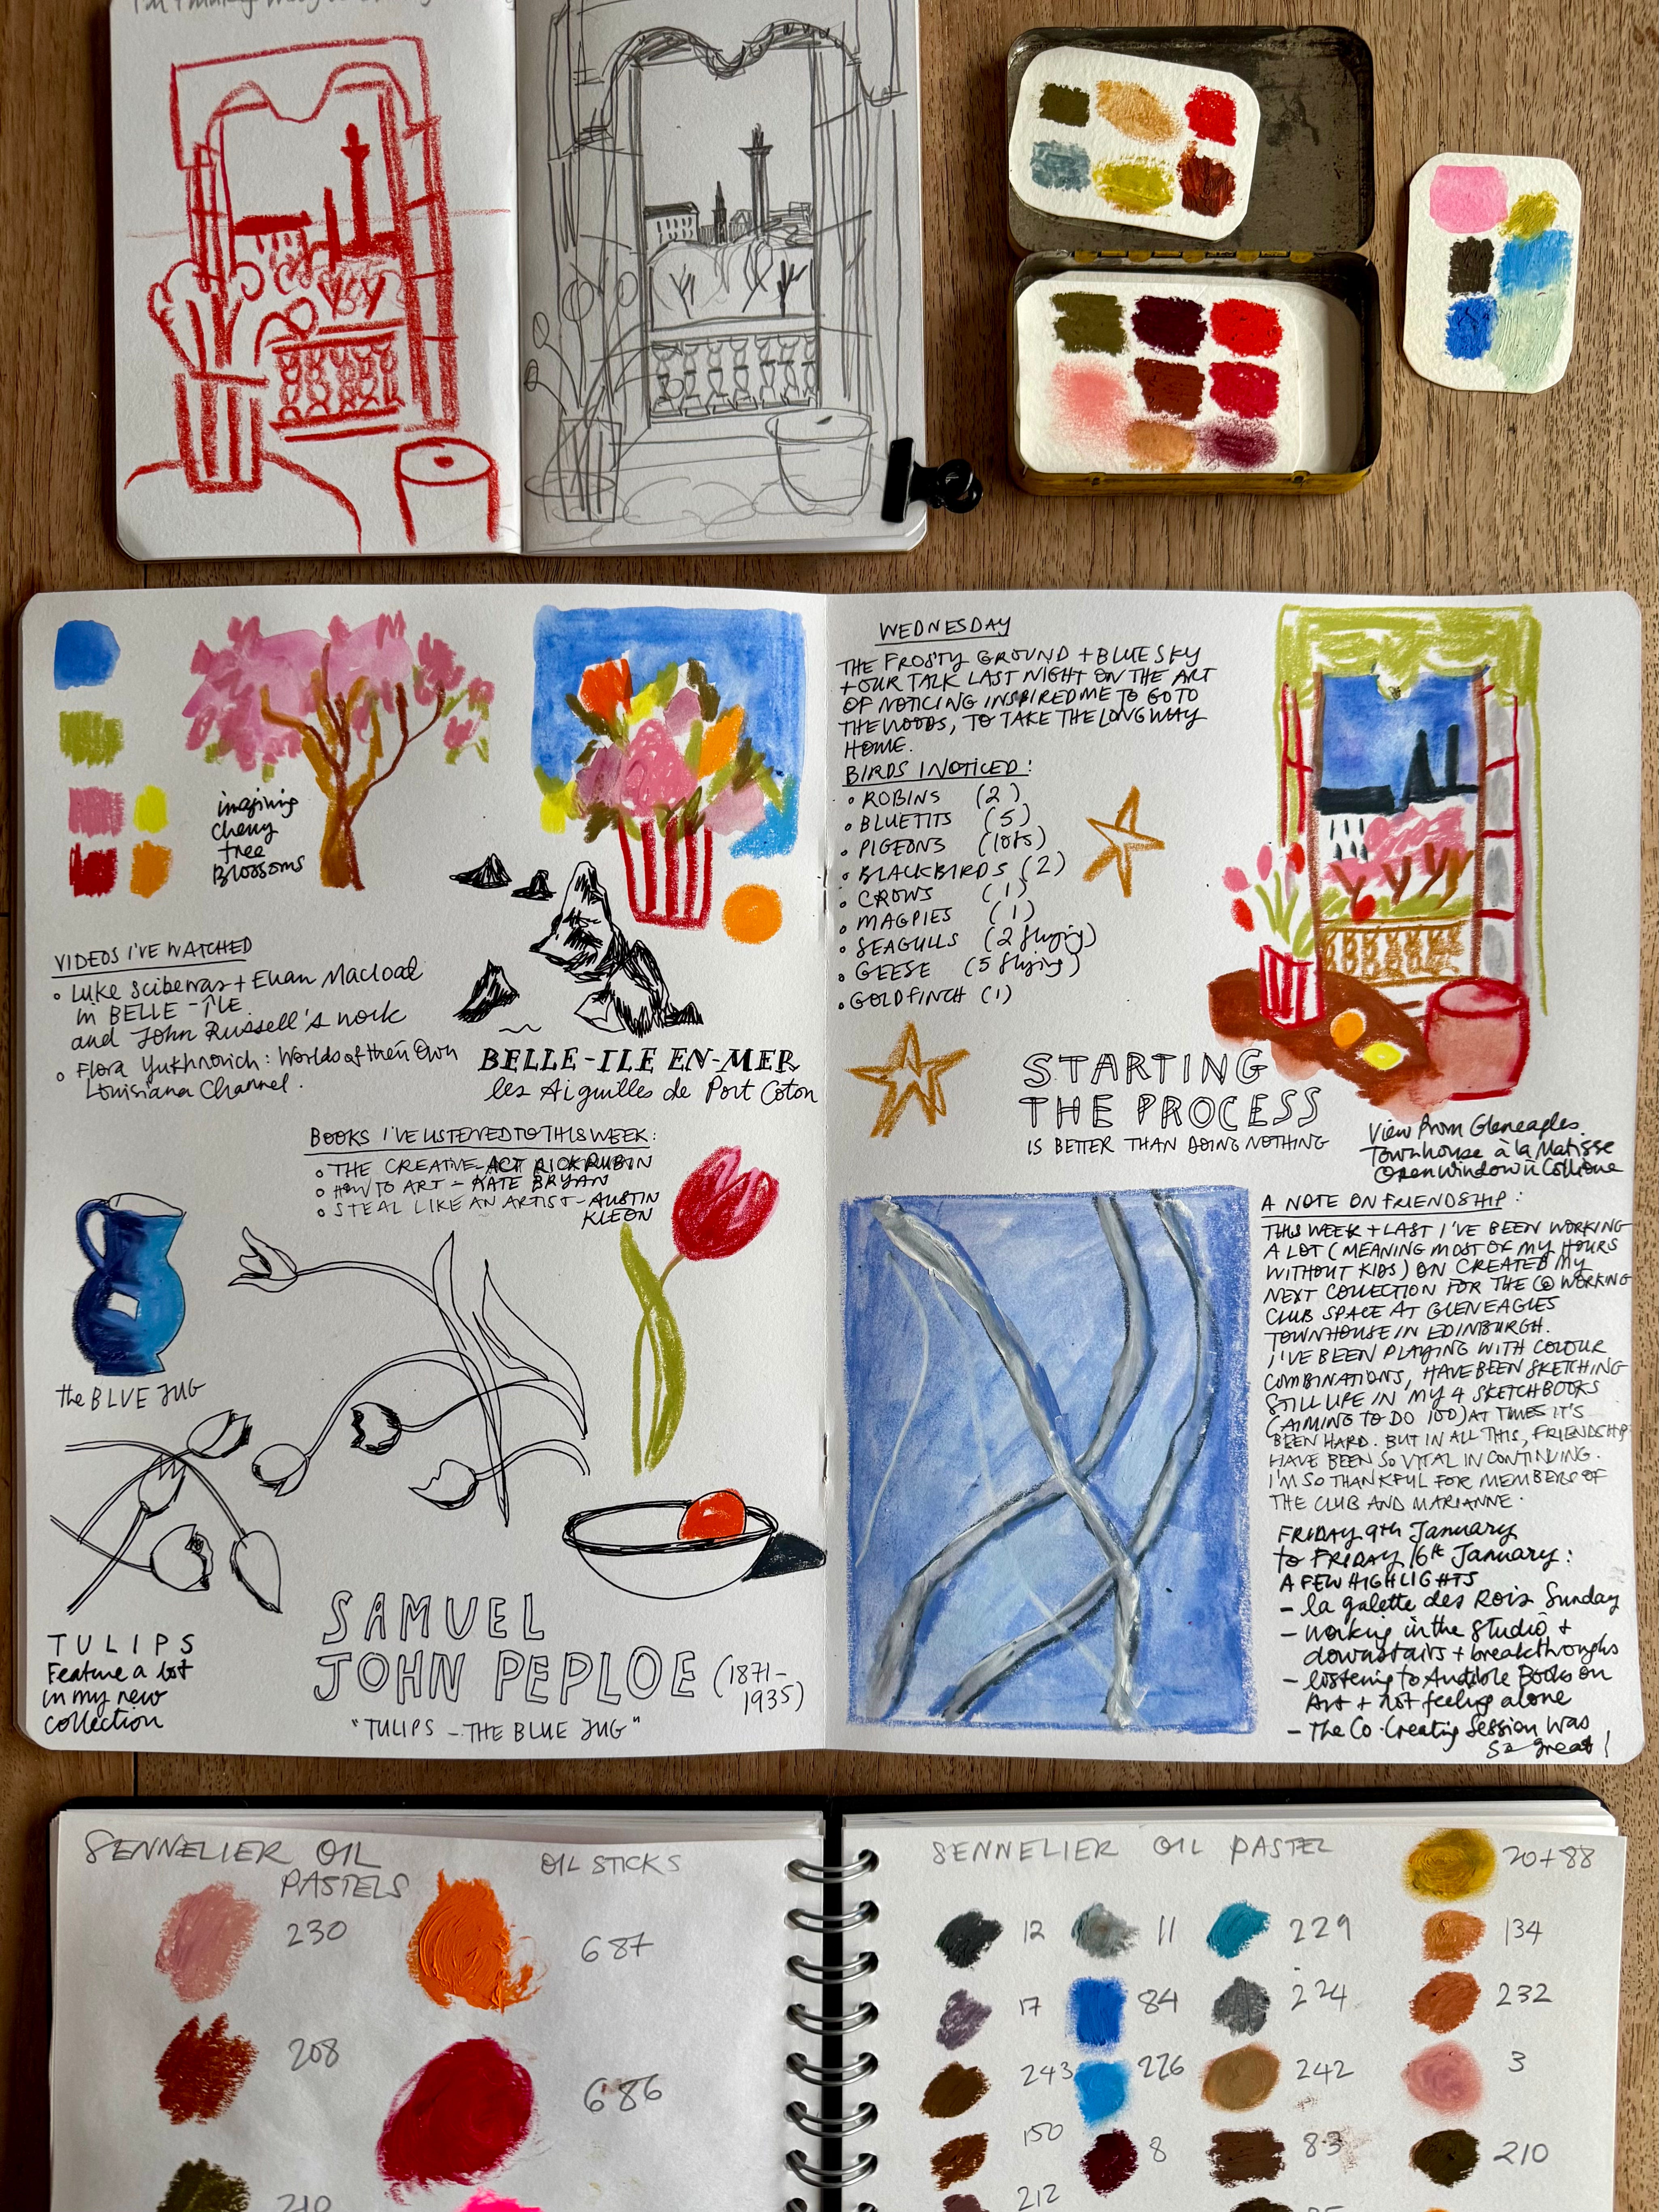 WEDNESDAY
THE FROSTY GROUND + BLUE SKY
+ OUR TALK LAST NIGHT ON THE ART
OF NOTICING INSPIRED ME TO GO TO
THE WOODS, TO TAKE THE LONG WAY
HOME.
BIRDS I NOTICED:
• ROBINS (2)
• BLUETITS (5)
• PIGEONS (lots)
• BLACKBIRDS (2)
• CROWS (1)
• MAGPIES (1)
• SEAGULLS (2 flying)
• GEESE (5 flying)
• GOLDFINCH (1)
imagining
cherry
tree
Blossoms
VIDEOS I'VE WATCHED
• Luke Sciberras + Euan Macload
in BELLE-ÎLE
and John Russell's work
• Flora Yukhnovich: Worlds of their Own
Louisiana Channel.
BELLE-ILE EN-MER
les Aiguilles de Port Coton
BOOKS I'VE LISTENED TO THIS WEEK:
• THE CREATIVE ACT RICK RUBIN
• HOW TO ART - KATE BRYAN
• STEAL LIKE AN ARTIST - AUSTIN
KLEON
the BLUE JUG
TULIPS
Feature a lot
in my new
collection
SAMUEL
JOHN PEPLOE (1871-
1935)
"TULIPS - THE BLUE JUG"
STARTING
THE PROCESS
IS BETTER THAN DOING NOTHING
View from Gleneagles
Townhouse à la Matisse
Open Window à Collioure
A NOTE ON FRIENDSHIP:
THIS WEEK + LAST I'VE BEEN WORKING
A LOT (MEANING MOST OF MY HOURS
WITHOUT KIDS) ON CREATED MY
NEXT COLLECTION FOR THE CO WORKING
CLUB SPACE AT GLENEAGLES
TOWNHOUSE IN EDINBURGH.
I'VE BEEN PLAYING WITH COLOUR
COMBINATIONS, HAVE BEEN SKETCHING
STILL LIFE IN MY 4 SKETCHBOOKS
(AIMING TO DO 100) AT TIMES IT'S
BEEN HARD. BUT IN ALL THIS, FRIENDSHIP
HAVE BEEN SO VITAL IN CONTINUING.
I'M SO THANKFUL FOR MEMBERS OF
THE CLUB AND MARIANNE.
FRIDAY 9th January
to FRIDAY 16th January:
A FEW HIGHLIGHTS
- la galette des Rois Sunday
- working in the studio +
downstairs + breakthroughs
- listening to Audible Books on
Art + not feeling alone
- The Co-Creating Session was
so great!
SENNELIER OIL
PASTELS
OIL STICKS
230
687
208
686
210
SENNELIER OIL PASTEL
20+88
12 11 229 134
17 84 224 232
243 226 242 3
150 8 83 210
212